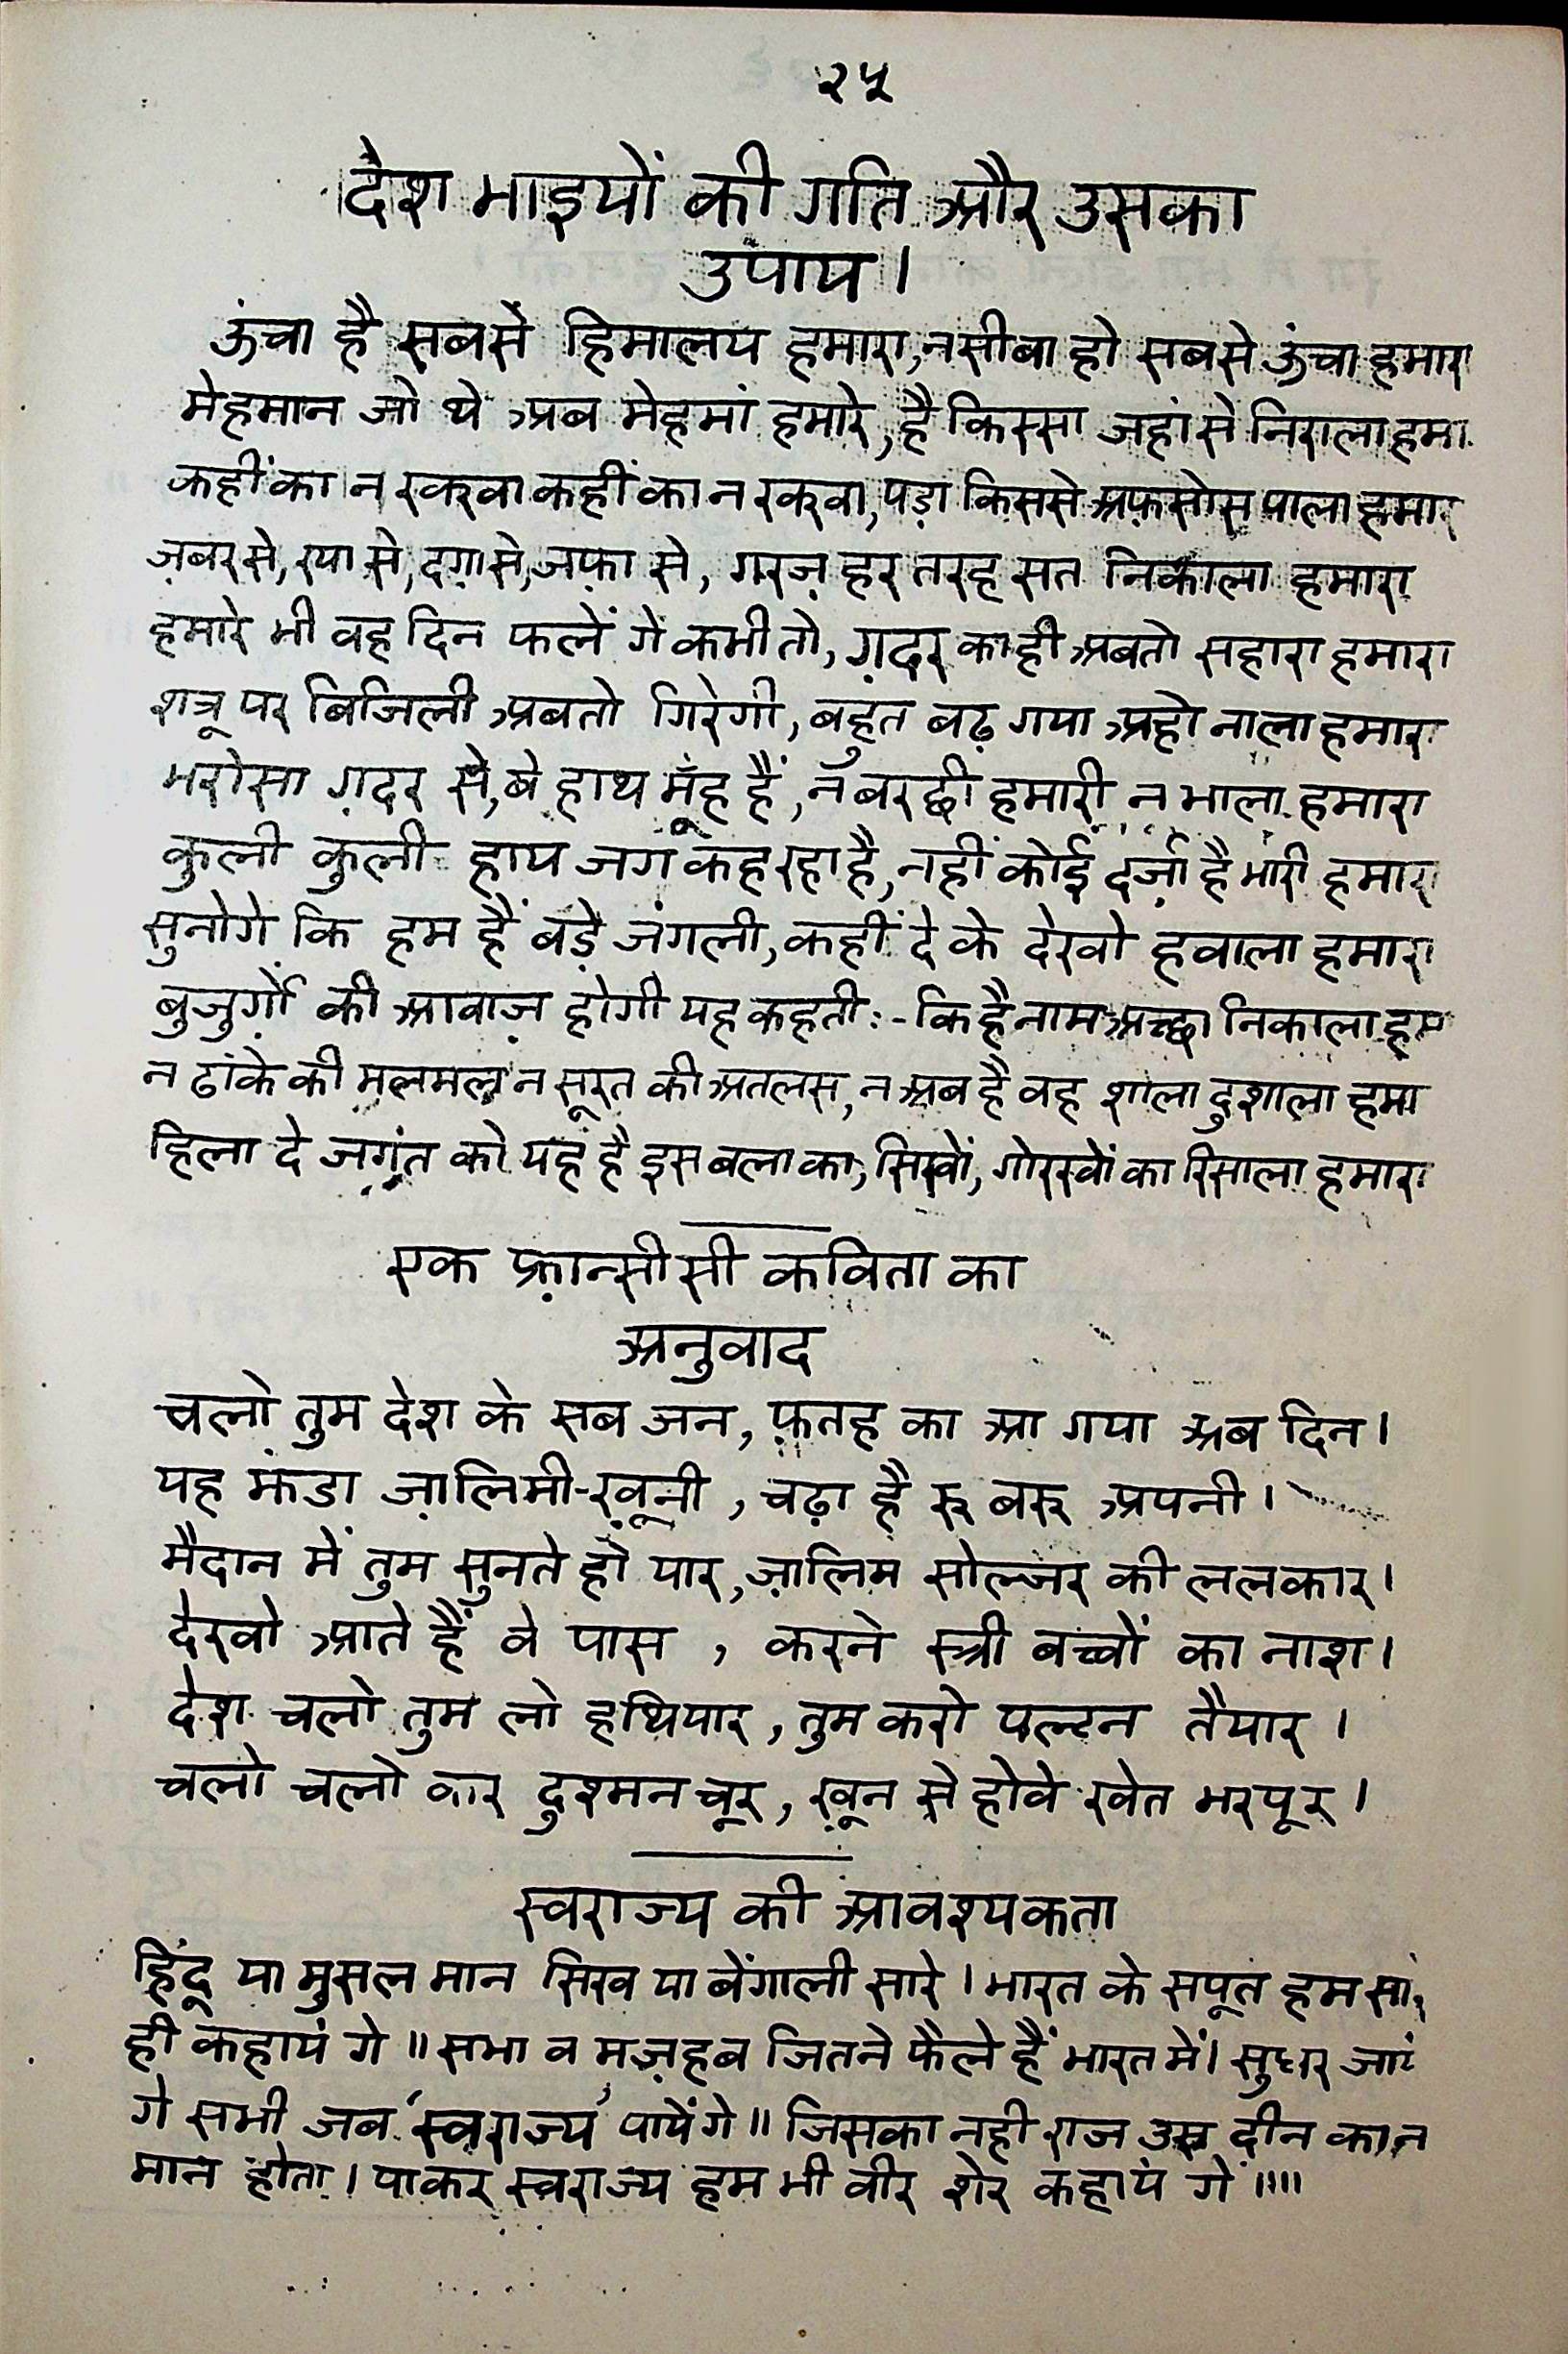 २५
देश भाइयों की गति और उसका
उपाय।
ऊंचा है सबसे हिमालय हमारा, नसीबा हो सबसे ऊंचा हमारा
मेहमान जो थे अब मेहमां हमारे, है किस्सा जहां से निराला हमा
कहीं का न रक्खा कहीं का न रक्खा, पड़ा किससे अफ़सोस पाला हमार
ज़बर से, रया से, दग़ा से, जफ़ा से, गरज़ हर तरह सत निकाला हमारा
हमारे भी वह दिन फलें गे कभी तो, ग़दर का ही अबतो सहारा हमारा
शत्रू पर बिजिली अबतो गिरेगी, बहुत बढ़ गया अहो नाला हमारा
भरोसा ग़दर से, बे हाथ मूँह हैं, न बरछी हमारी न भाला हमारा
कुली कुली हाय जग कह रहा है, नहीं कोई दर्ज़ा है भारी हमारा
सुनोगे कि हम हैं बड़े जंगली, कहीं दे के देखो हवाला हमारा
बुजुर्गों की आवाज़ होगी यह कहती :- कि है नाम अच्छा निकाला हमा
न ढांके की मलमल न सूरत की अतलस, न अब है वह शाला दुशाला हमा
हिला दे जगत को यह है इस बला का, सिखों, गोरखों का रिसाला हमारा
एक फ़्रान्सीसी कविता का
अनुवाद
चलो तुम देश के सब जन, फ़तह का आ गया अब दिन।
यह झंडा ज़ालिमी-ख़ूनी, चढ़ा है रू बरू अपनी।
मैदान में तुम सुनते हो यार, ज़ालिम सोल्जर की ललकार।
देखो आते हैं वे पास, करने स्त्री बच्चों का नाश।
देश चलो तुम लो हथियार, तुम करो पल्टन तैयार।
चलो चलो कार दुश्मन चूर, ख़ून से होवे खेत भरपूर।
स्वराज्य की आवश्यकता
हिंदू या मुसल मान सिख या बेंगाली सारे। भारत के सपूत हम सारे
ही कहायं गे॥ सभा व मज़हब जितने फैले हैं भारत में। सुधर जायं
गे सभी जब 'स्वराज्य' पायेंगे॥ जिसका नही राज उस दीन का न
मान होता। पाकर स्वराज्य हम भी वीर शेर कहायं गे॥॥